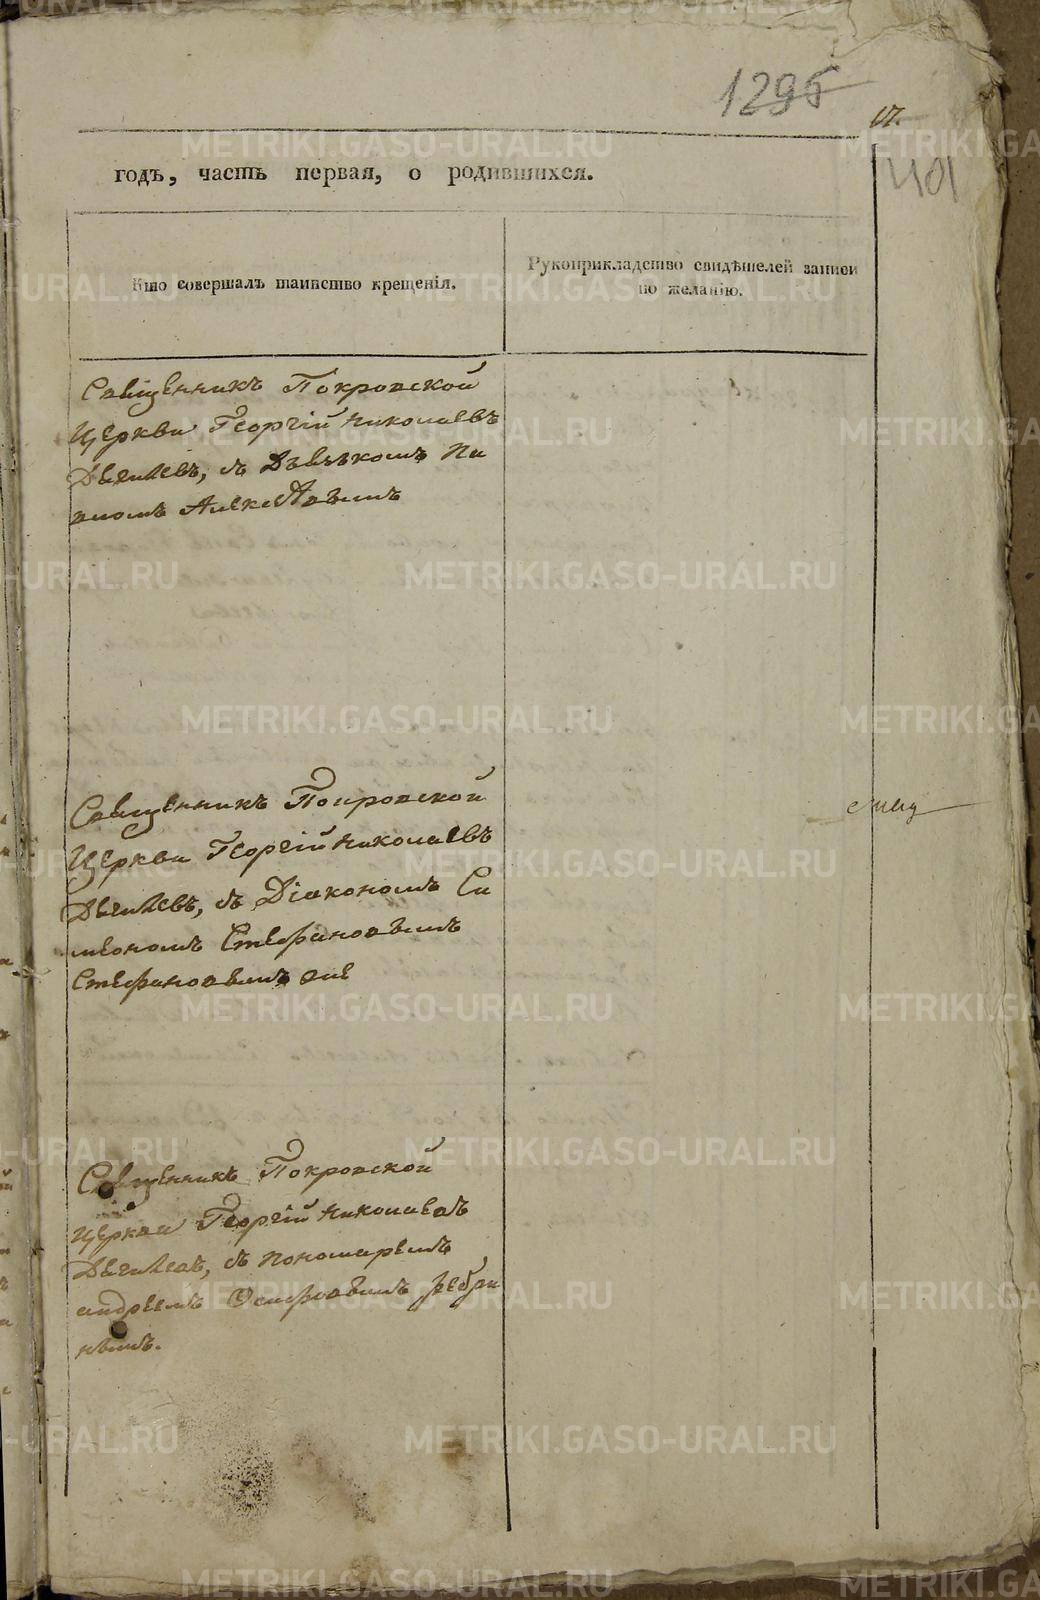 1295
17.
401
годъ, часть первая, о родившихся.
Кто совершалъ таинство крещенія.
Рукоприкладство свидѣтелей записи
по желанію.
Священникъ Покровской
Церкви Георгій Николаевъ
съ
Священникъ Покровской
Церкви Георгій Николаевъ
съ Діакономъ Си
меономъ Стефановымъ
Стефановымъ же
Священникъ Покровской
Церкви Георгій Николаевъ
съ пономаремъ
андреемъ Осиповымъ Ребри
нымъ.
METRIKI.GASO-URAL.RU